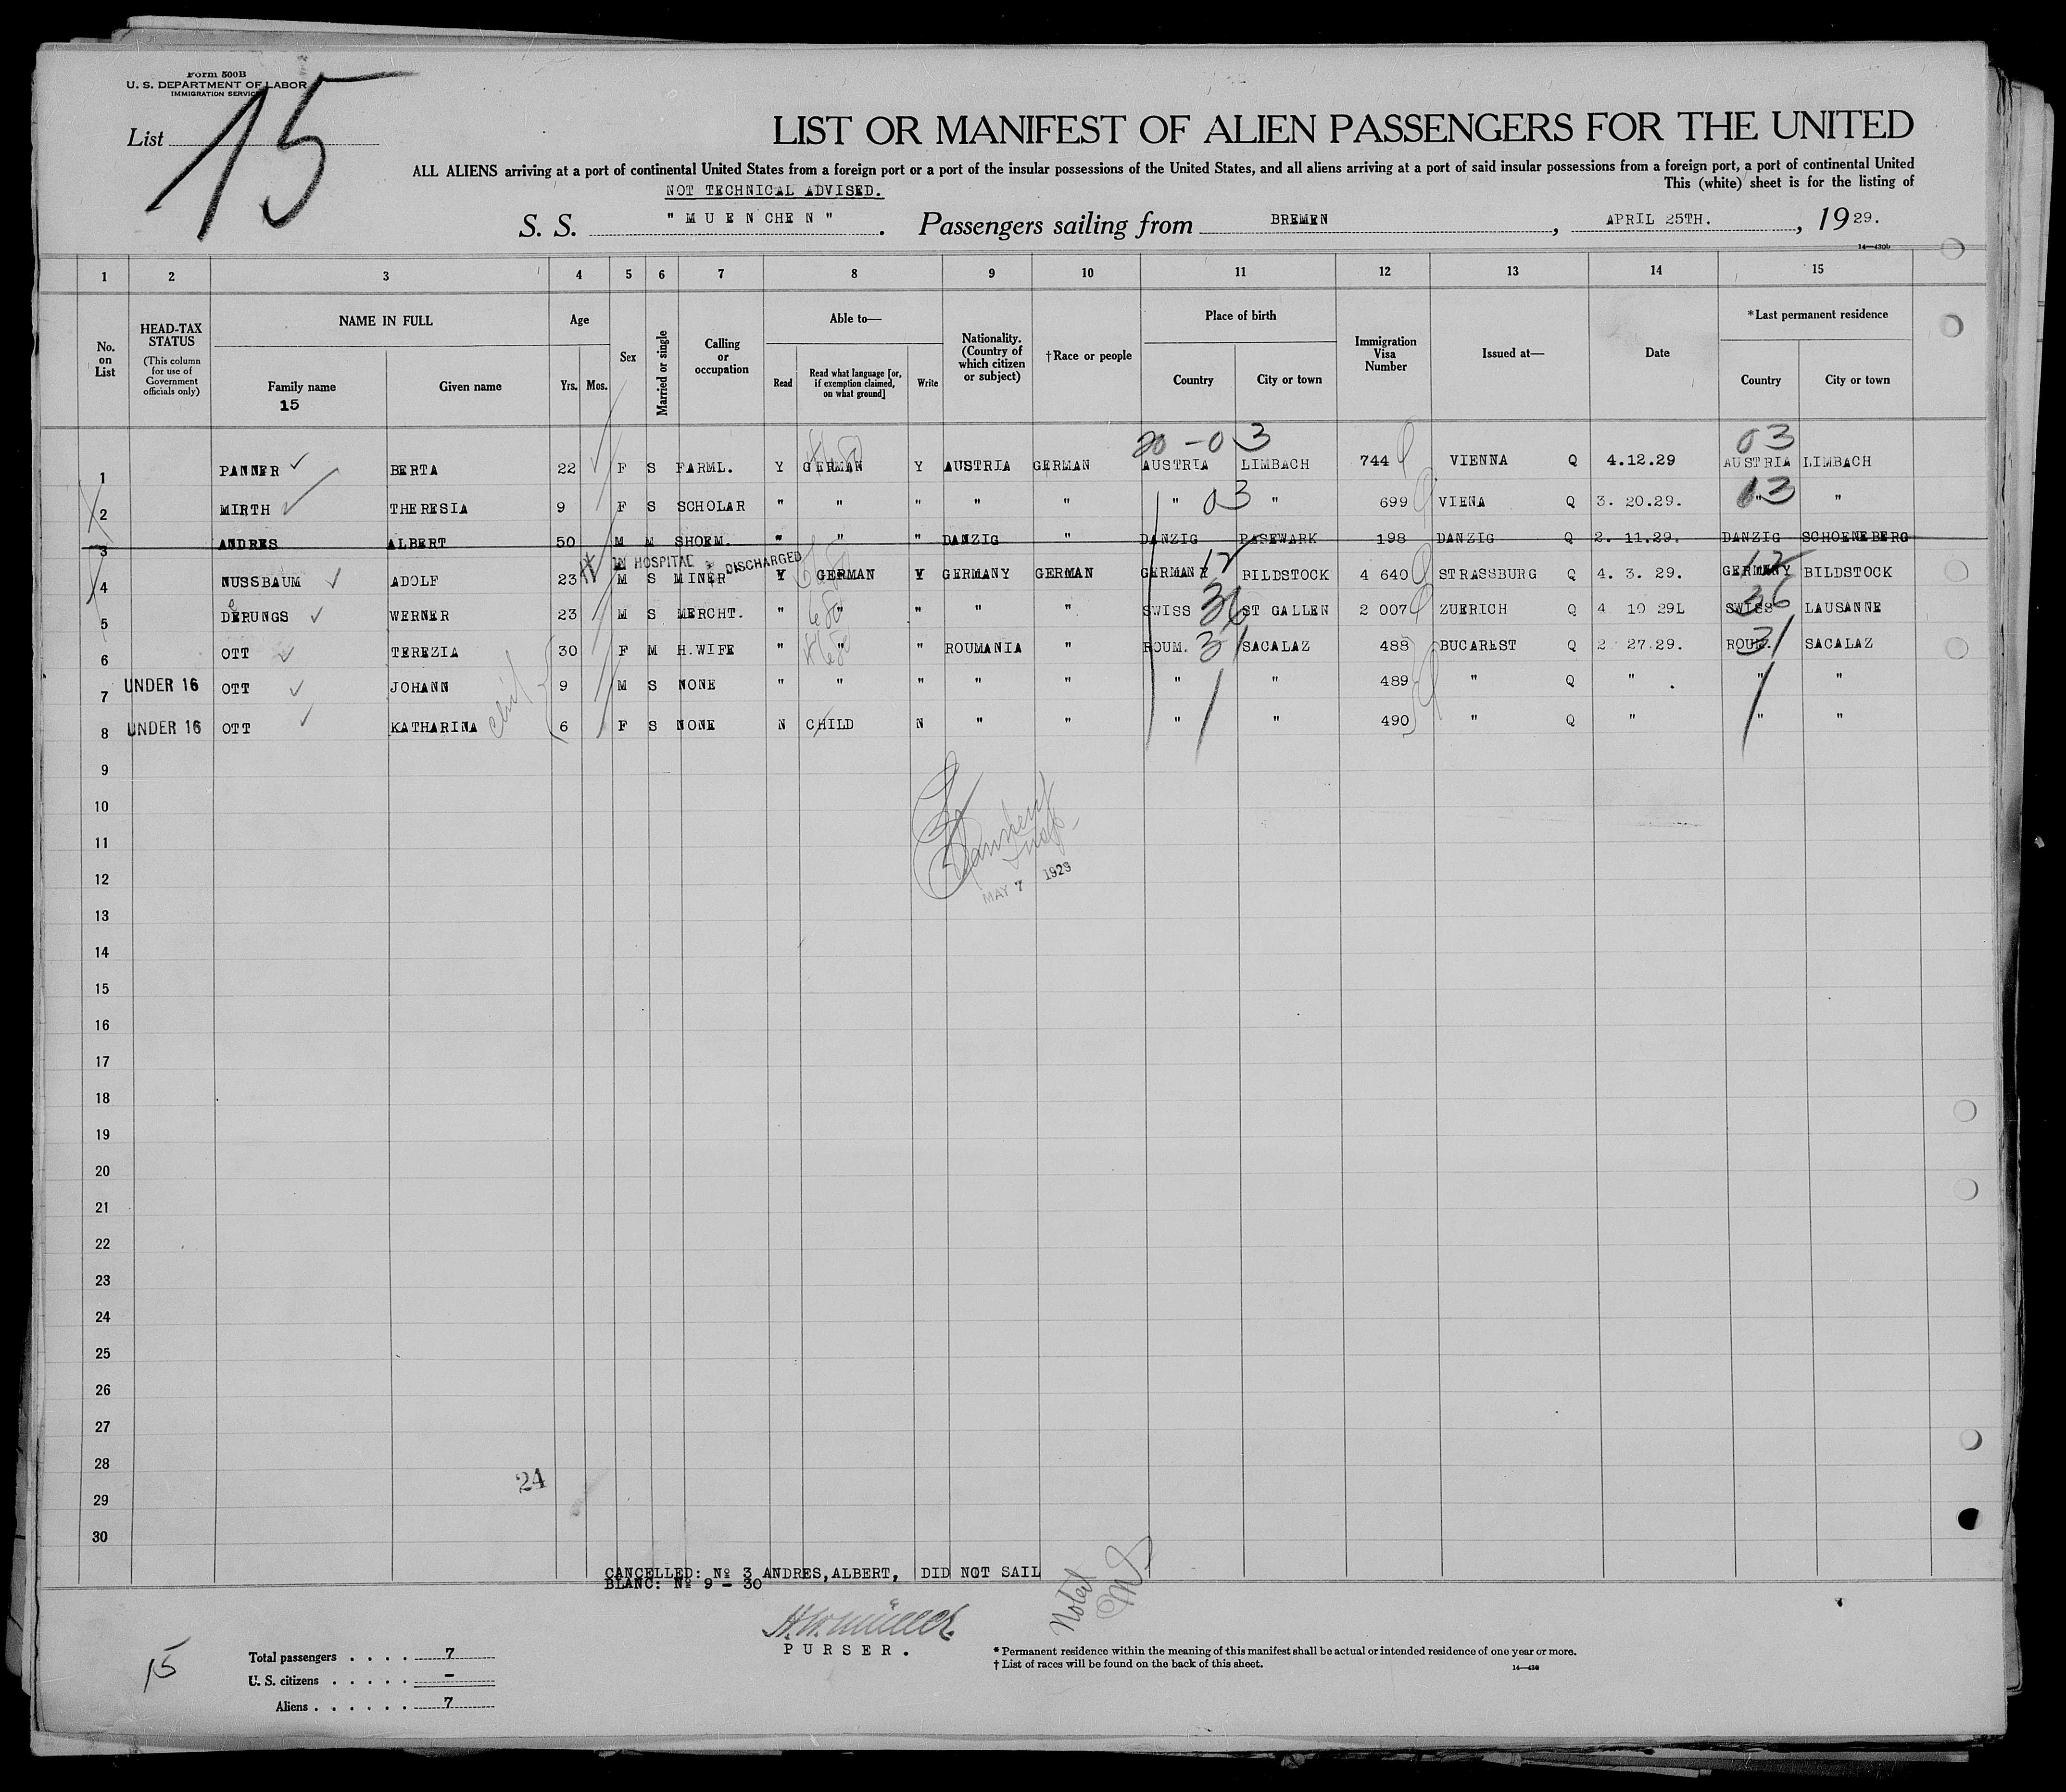 Form 500B
U. S. DEPARTMENT OF LABOR
IMMIGRATION SERVICE
List 15
LIST OR MANIFEST OF ALIEN PASSENGERS FOR THE UNITED
ALL ALIENS arriving at a port of continental United States from a foreign port or a port of the insular possessions of the United States, and all aliens arriving at a port of said insular possessions from a foreign port, a port of continental United
This (white) sheet is for the listing of
NOT TECHNICAL ADVISED.
S. S. "MUENCHEN". Passengers sailing from BREMEN, APRIL 25TH., 1929.
14—430b
1 2 3 4 5 6 7 8 9 10 11 12 13 14 15
No. on List
HEAD-TAX STATUS
(This column for use of Government officials only)
NAME IN FULL
Family name
15
Given name
Age
Yrs. Mos.
Sex
Married or single
Calling or occupation
Able to—
Read
Read what language [or, if exemption claimed, on what ground]
Write
Nationality. (Country of which citizen or subject)
†Race or people
Place of birth
Country City or town
Immigration Visa Number
Issued at—
Date
*Last permanent residence
Country City or town
20-03 03
1 PANNER BERTA 22 F S FARML. Y GERMAN Y AUSTRIA GERMAN AUSTRIA LIMBACH 744 VIENNA Q 4.12.29 AUSTRIA LIMBACH
2 MIRTH THERESIA 9 F S SCHOLAR " " " " " " 03 " 699 VIENA Q 3. 20.29. " 03 "
3 ANDRES ALBERT 50 M M SHOEM. " " " DANZIG " DANZIG PASEWARK 198 DANZIG Q 2. 11.29. DANZIG SCHOENEBERG
X IN HOSPITAL DISCHARGED
4 NUSSBAUM ADOLF 23 M S MINER Y GERMAN Y GERMANY GERMAN GERMANY 12 BILDSTOCK 4 640 STRASSBURG Q 4. 3. 29. GERMANY 12 BILDSTOCK
5 DERUNGS WERNER 23 M S MERCHT. " " " " " SWISS 36 ST GALLEN 2 007 ZUERICH Q 4 10 29L SWISS 36 LAUSANNE
6 OTT TEREZIA 30 F M H.WIFE " " " ROUMANIA " ROUM. 31 SACALAZ 488 BUCAREST Q 2 27.29. ROUM. 31 SACALAZ
7 UNDER 16 OTT JOHANN 9 M S NONE " " " " " " " 489 " Q " " "
8 UNDER 16 OTT KATHARINA 6 F S NONE N CHILD N " " " " 490 " Q " " "
9
10
11
12
MAY 7 1929
13
14
15
16
17
18
19
20
21
22
23
24
25
26
27
28
24
29
30
CANCELLED: № 3 ANDRES,ALBERT, DID NOT SAIL
BLANC: № 9 - 30
Noted
PURSER.
15
Total passengers . . . . 7
U. S. citizens . . . . . -
Aliens . . . . . . 7
* Permanent residence within the meaning of this manifest shall be actual or intended residence of one year or more.
† List of races will be found on the back of this sheet.
14—430